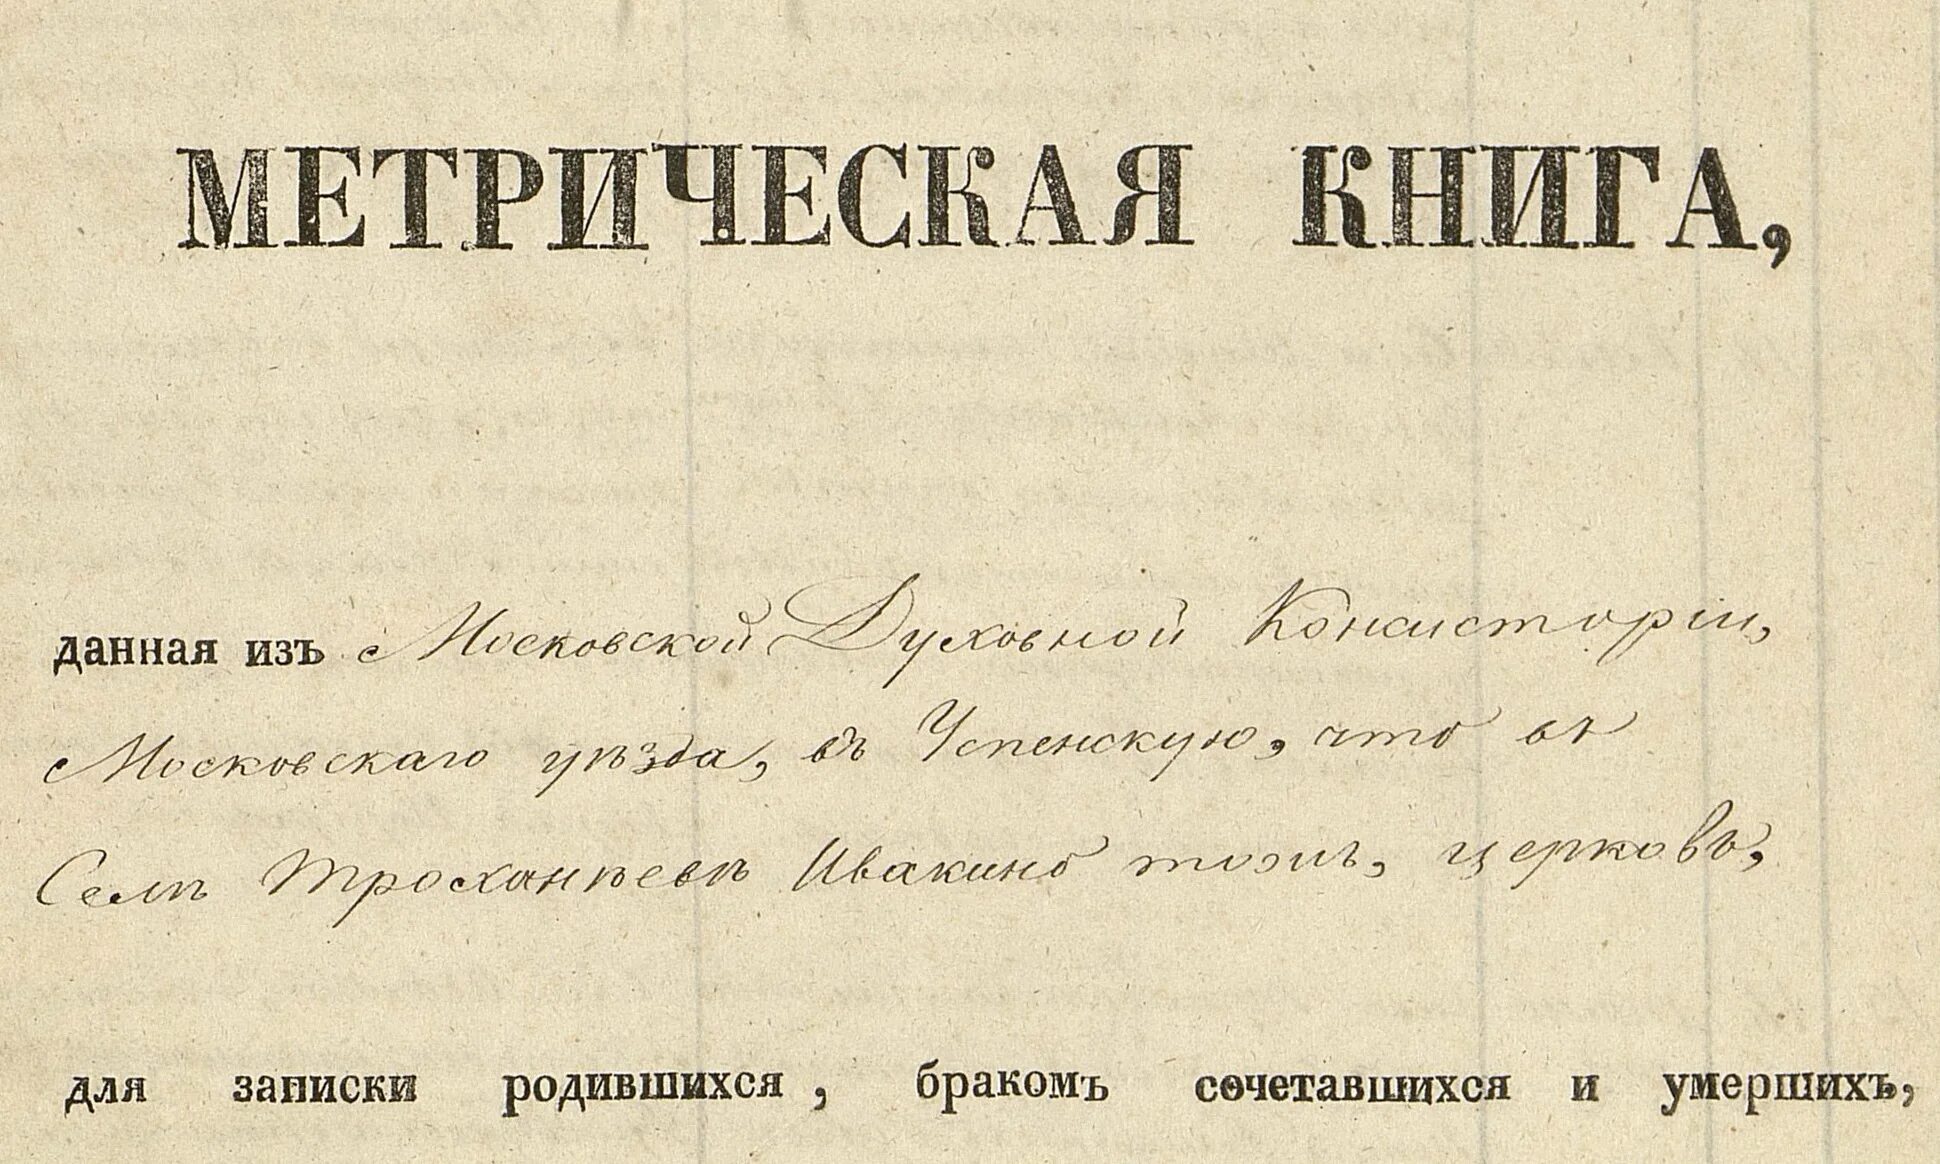 МЕТРИЧЕСКАЯ КНИГА,
данная изъ Московской Духовной Консисторіи,
Московскаго уѣзда, въ Успенскую, что въ
Селѣ Троханѣевѣ Ивакино тожъ, церковь,
для записки родившихся, бракомъ сочетавшихся и умершихъ,